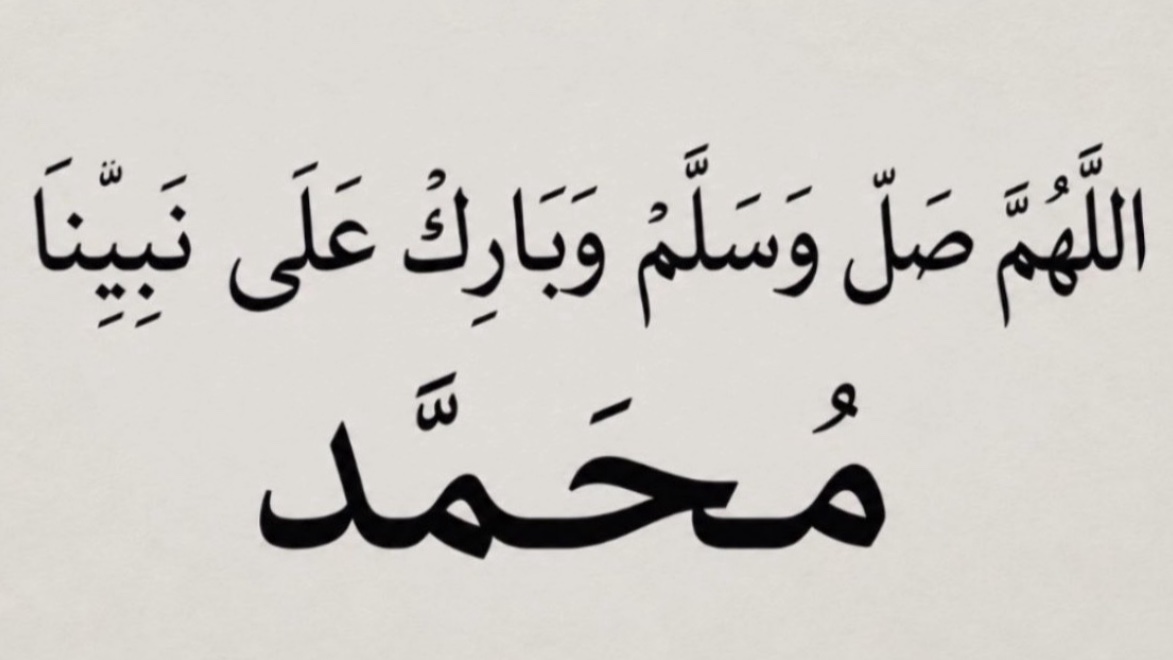 اللَّهُمَّ صَلّ وَسَلَّمْ وَبَارِكْ عَلَى نَبِيِّنَا
مُحَمَّد